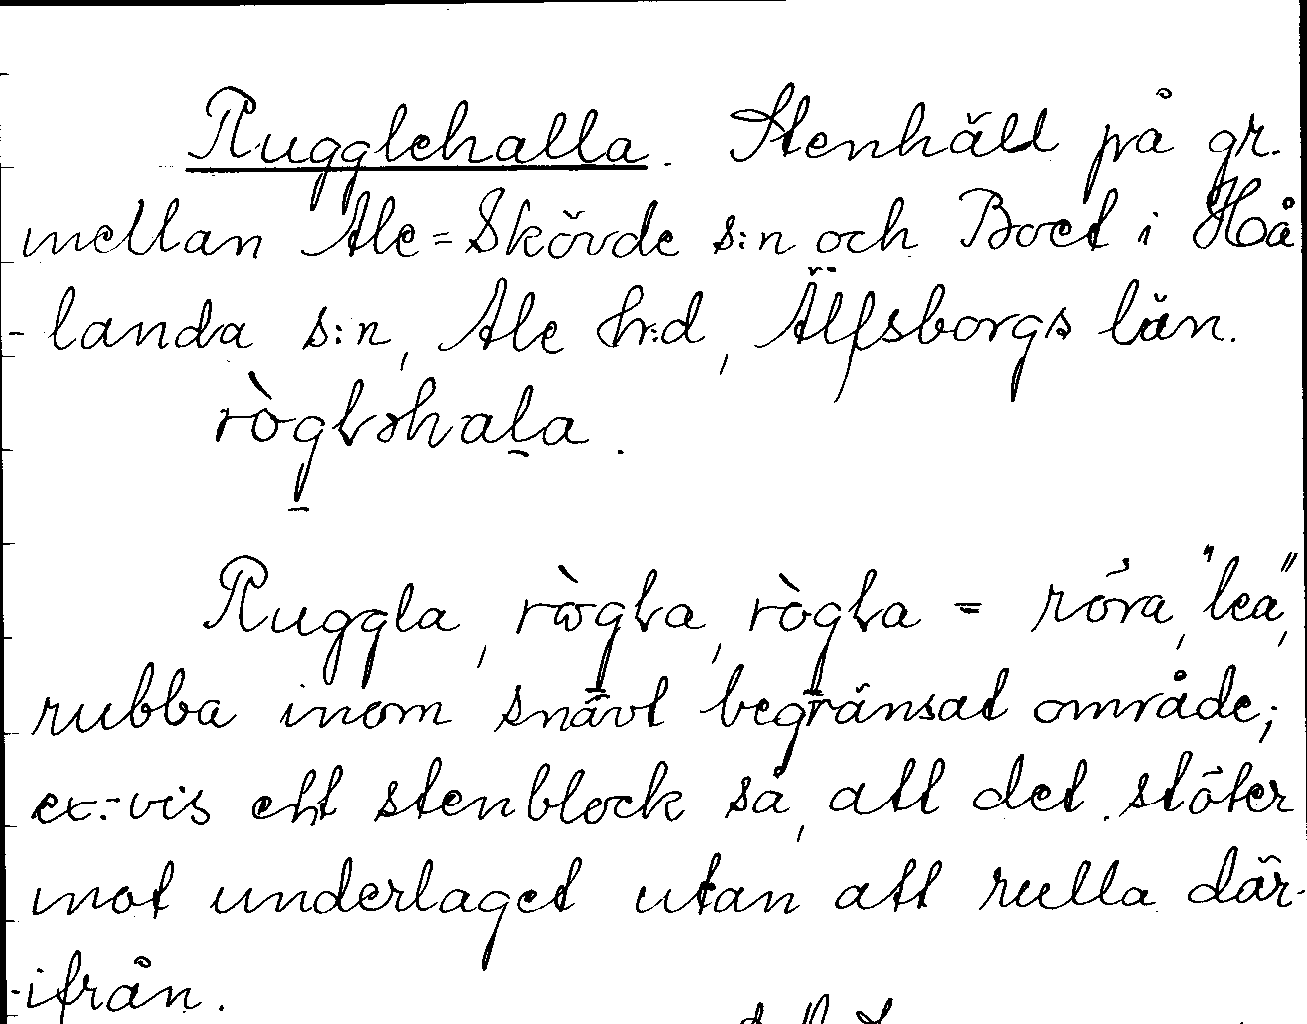 Rugglehalla. Stenhäll på gr.
mellan Ale=Skövde s:n och Boet i Hå
-landa s:n, Ale h:d, Älfsborgs län.
rògləhala.
Ruggla, rògla, rògla = röra, "lea",
rubba inom snävt begränsat område;
ex:vis ett stenblock så, att det stöter
mot underlaget utan att rulla där-
-ifrån.